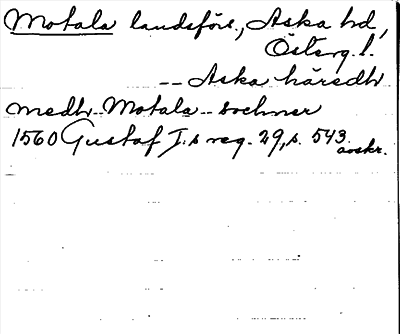 Motala landsförs., Aska hd,
Österg. l.
-- Aska häredh
medh Motala -- sochner
1560 Gustaf I.s reg. 29, s. 543.
avskr.